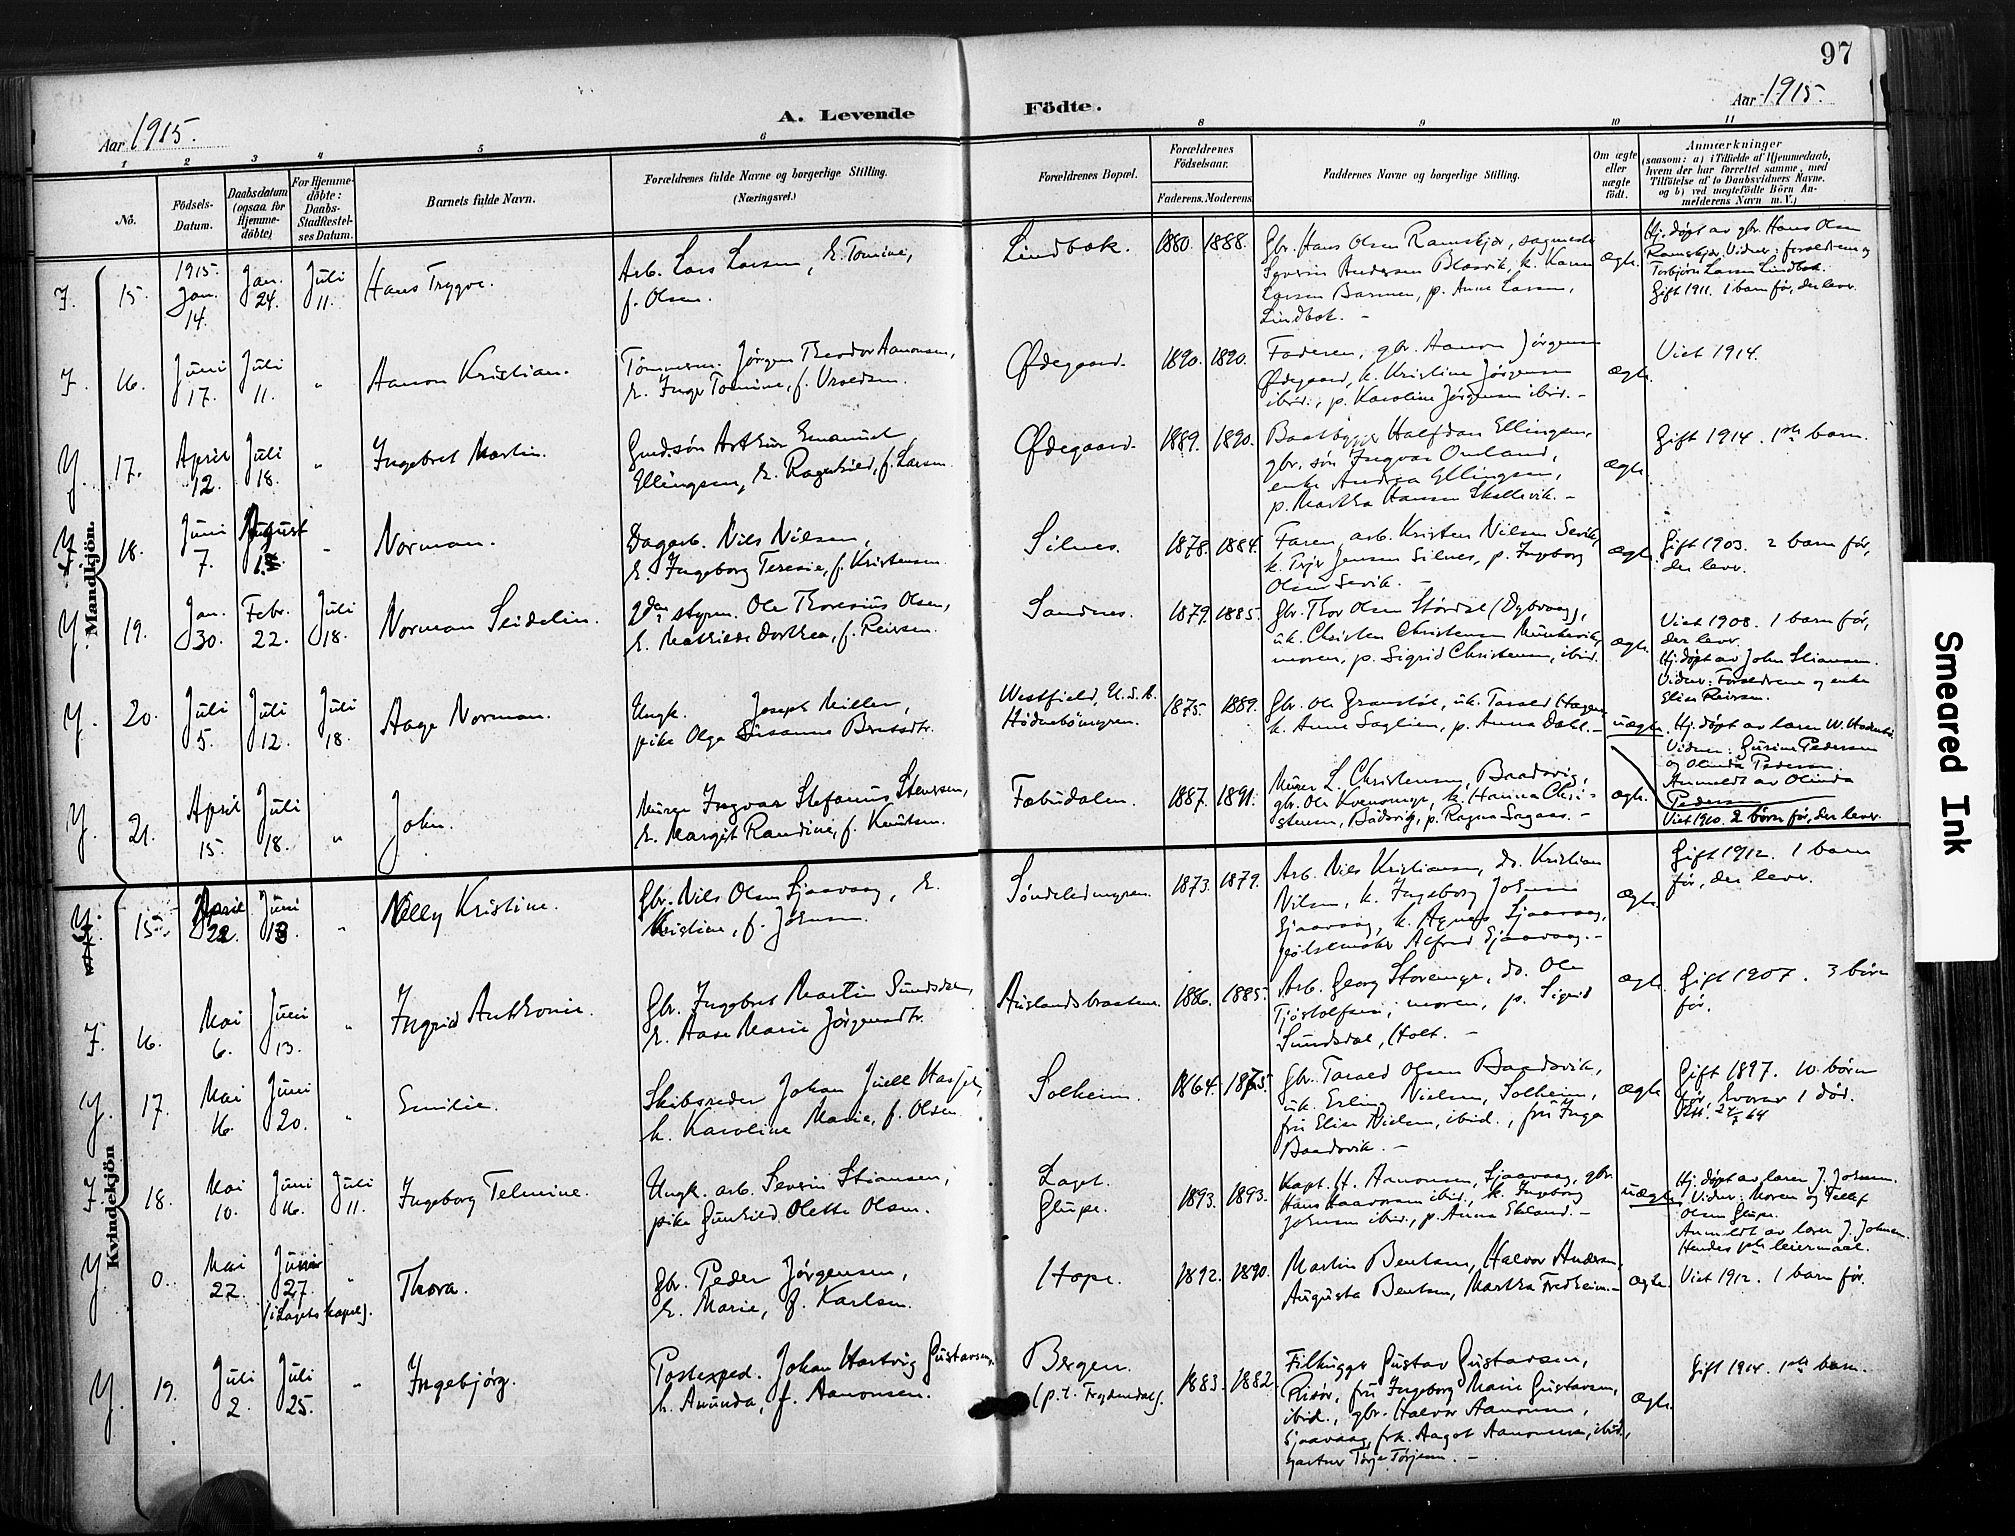 97
Aar 1915.
A. Levende
Födte.
Aar 1915.
1 2 3 4 5 6 8 9 10 11
No.
Födsels-
Datum.
Daabsdatum
(ogsaa for
Hjemme-
döbte)
For Hjemme-
döbte:
Daabs-
Stadfæstel-
ses Datum.
Barnets fulde Navn.
Forældrenes fulde Navne og borgerlige Stilling.
(Næringsvei.)
Forældrenes Bopæl.
Forældrenes
Födselsaar.
Faderens. Moderens
Faddernes Navne og borgerlige Stilling.
Om ægte
eller
uægte
födt.
Anmærkninger
(saasom: a) i Tilfælde af Hjemmedaab,
hvem der har forrettet samme, med
Tilföielse af to Daabsvidners Navne.
og b) ved uegtefödte Börn An-
melderens Navn m. V.)
Mandkjön.
J. 15. 1915. Jan. 14. Jan. 24. Juli 11. Hans Trygve.
Arb. Lars Larsen, E. Tomine,
f. Olsen.
Lindbæk. 1880. 1888.
Gbr. Hans Olsen Ramskjær,
Severin Andersen k. Karen
Larsen p. Anna Larsen,
Lindbæk. -
ægte.
Hj. døpt av gbr. Hans Olsen
Ramskjær. Vidner: forældrene og
Torbjørn Larsen Lindbæk.
Gift 1911. 1 barn før, der lever.
J. 16. Juni 17. Juli 11. " Aanon Kristian.
Tømmerm. Jørgen Theodor Aanonsen,
E. Inga Tomine, f.
Ødegaard. 1890. 1890.
Faderen, gbr. Aanon Jørgensen
Ødegaard, k. Kristine Jørgensen
ibid., p. Karoline Jørgensen ibid. -
ægte.
Viet 1914.
Y. 17. April 12. Juli 18. " Ingebret Martin.
Gaardsøn Arthur Emanuel
Ellingsen, E. Ragnhild, f. Larsen.
Ødegaard. 1889. 1890.
Baatbygger Halfdan Ellingsen,
gbr. søn Ingvar Omland,
enke Andrea Ellingsen,
p. Martha Hansen Skallevik. -
ægte.
Gift 1914. 1ste barn.
Y. 18. Juni 7. August Norman.
Dagarb. Nils Nilsen,
E. Ingeborg Teresie, f. Kristensen.
Silnes. 1878. 1884.
Faren, arb. Kristen Nilsen Sevik,
k. Jensen Silnes, p. Ingeborg
Olsen Sevik. -
ægte.
Gift 1903. 2 barn før,
der lever.
Y. 19. Jan. 30. Febr. 22. Juli 18. Norman Seidelin.
2den styrm. Ole Thoresius Olsen,
E. Mathilde Dorthea, f. Reiersen.
Sandnes. 1879. 1885.
Gbr. Thor Olsen Størdal (Dybvaag),
uk. Christen Christensen
moren, p. Sigrid Christensen, ibid.
ægte.
Viet 1908. 1 barn før,
der lever.
Hj. døpt av John Stiansen.
Vidner: Forældrene og enke
Elise Reiersen.
Y. 20. Juli 5. Juli 12. Juli 18. Aage Norman.
Ungk. Joseph Miller,
pike Olga Susanne
Westfield, U.S.A.
1875. 1889.
Gbr. Ole uk. Tarald Hagen
k. Anne p. Anna Dahl. -
uægte.
Hj. døpt av læren W.
Vidner: Gurine Pedersen
og Olinda Pedersen.
Anmeldt av Olinda
Pedersen
Y. 21. April 15. Juli 18. " John.
Murer Ingvar Stefanus Stensen,
E. Margit Randine, f. Knutsen.
1887. 1891.
Murer L. Christensen, Baadsvig,
gbr. Ole k. Hanna Chri-
stensen, Bådsvig, p. Ragna
ægte.
Viet 1910. 2 børn før, der lever.
Kvindekjön
15. Juni Nelly Kristine.
Gbr. Nils Olsen Sjaavaag, E.
Kristine, f. Johnsen.
Søndeledmyren. 1873. 1879.
Arb. Nils Kristiansen, do. Kristian
Nilsen, k. Ingeborg Johnsen
Sjaavaag, k. Agnes Sjaavaag,
pølsemaker Alfred Sjaavaag. -
ægte.
Gift 1912. 1 barn
før, der lever.
J. 16. Mai 6. Juni 13. " Ingrid Anthonie.
Gbr. Ingebret Martin Sundsdal,
E. Aase Marie Jørgensdtr.
Auslandsbraaten. 1886. 1885.
Arb. Georg Storenge, do. Ole
Tjøstolfsen, moren, p. Sigrid
Sundsdal, Holt. -
ægte.
Gift 1907. 3 børn
før.
Y. 17. Mai 16. Juni 20. " Emilie.
Skibsreder Johan Juell Hasseldal,
k. Karoline Marie, f. Olsen.
Solheim. 1864. 1875.
Gbr. Tarald Olsen Baadsvik,
uk. Erling Nielsen, Solheim,
fru Elise Nielsen, ibid., fru Inga
Baadsvik. -
ægte.
Gift 1897. 10 børn
før, hvorav 1 død.
J. 18. Mai 10. Juni 16. Juli 11. Ingeborg Telmine.
Ungk. arb. Severin Stiansen,
pike Gunhild Olette Olsen.
Laget.
Glupe.
1893. 1893.
Kapt. H. Aanonsen, Sjaavaag, gbr.
Hans Haavorsen ibid., k. Ingeborg
Johnsen ibid., p. Anna Ekland. -
uægte
Hj. døpt av læren J. Johnsen.
Vidner: Moren og Tellef
Olsen Glupe.
Anmeldt av lærer J. Johnsen.
Hendes 1ste leiermaal.
Y. 0. Mai 22. Juni 27. "
(i Lagets kapel).
Thora.
Gbr. Peder Jørgensen,
E. Marie, f. Karlsen.
Hope. 1892. 1890.
Martin Bentsen, Halvor Andersen,
Augusta Bentsen, Martha Fredheim. -
ægte.
Viet 1912. 1 barn før.
Y. 19. Juli 2. Juli 25. " Ingebjørg.
Postexped. Johan Hartvig Gustavsen,
k. Amunda, f. Aanonsen.
Bergen.
(p.t. Frydendal).
1883. 1882.
Filhugger Gustav Gustavsen,
Risør, fru Ingeborg Marie Gustavsen,
ibid., gbr. Halvor Aanonsen,
Sjaavaag, frk. Aagot Aanonsen, ibid.,
gartner Tørje Tørjesen. -
ægte.
Gift 1914. 1ste barn.
Smeared Ink